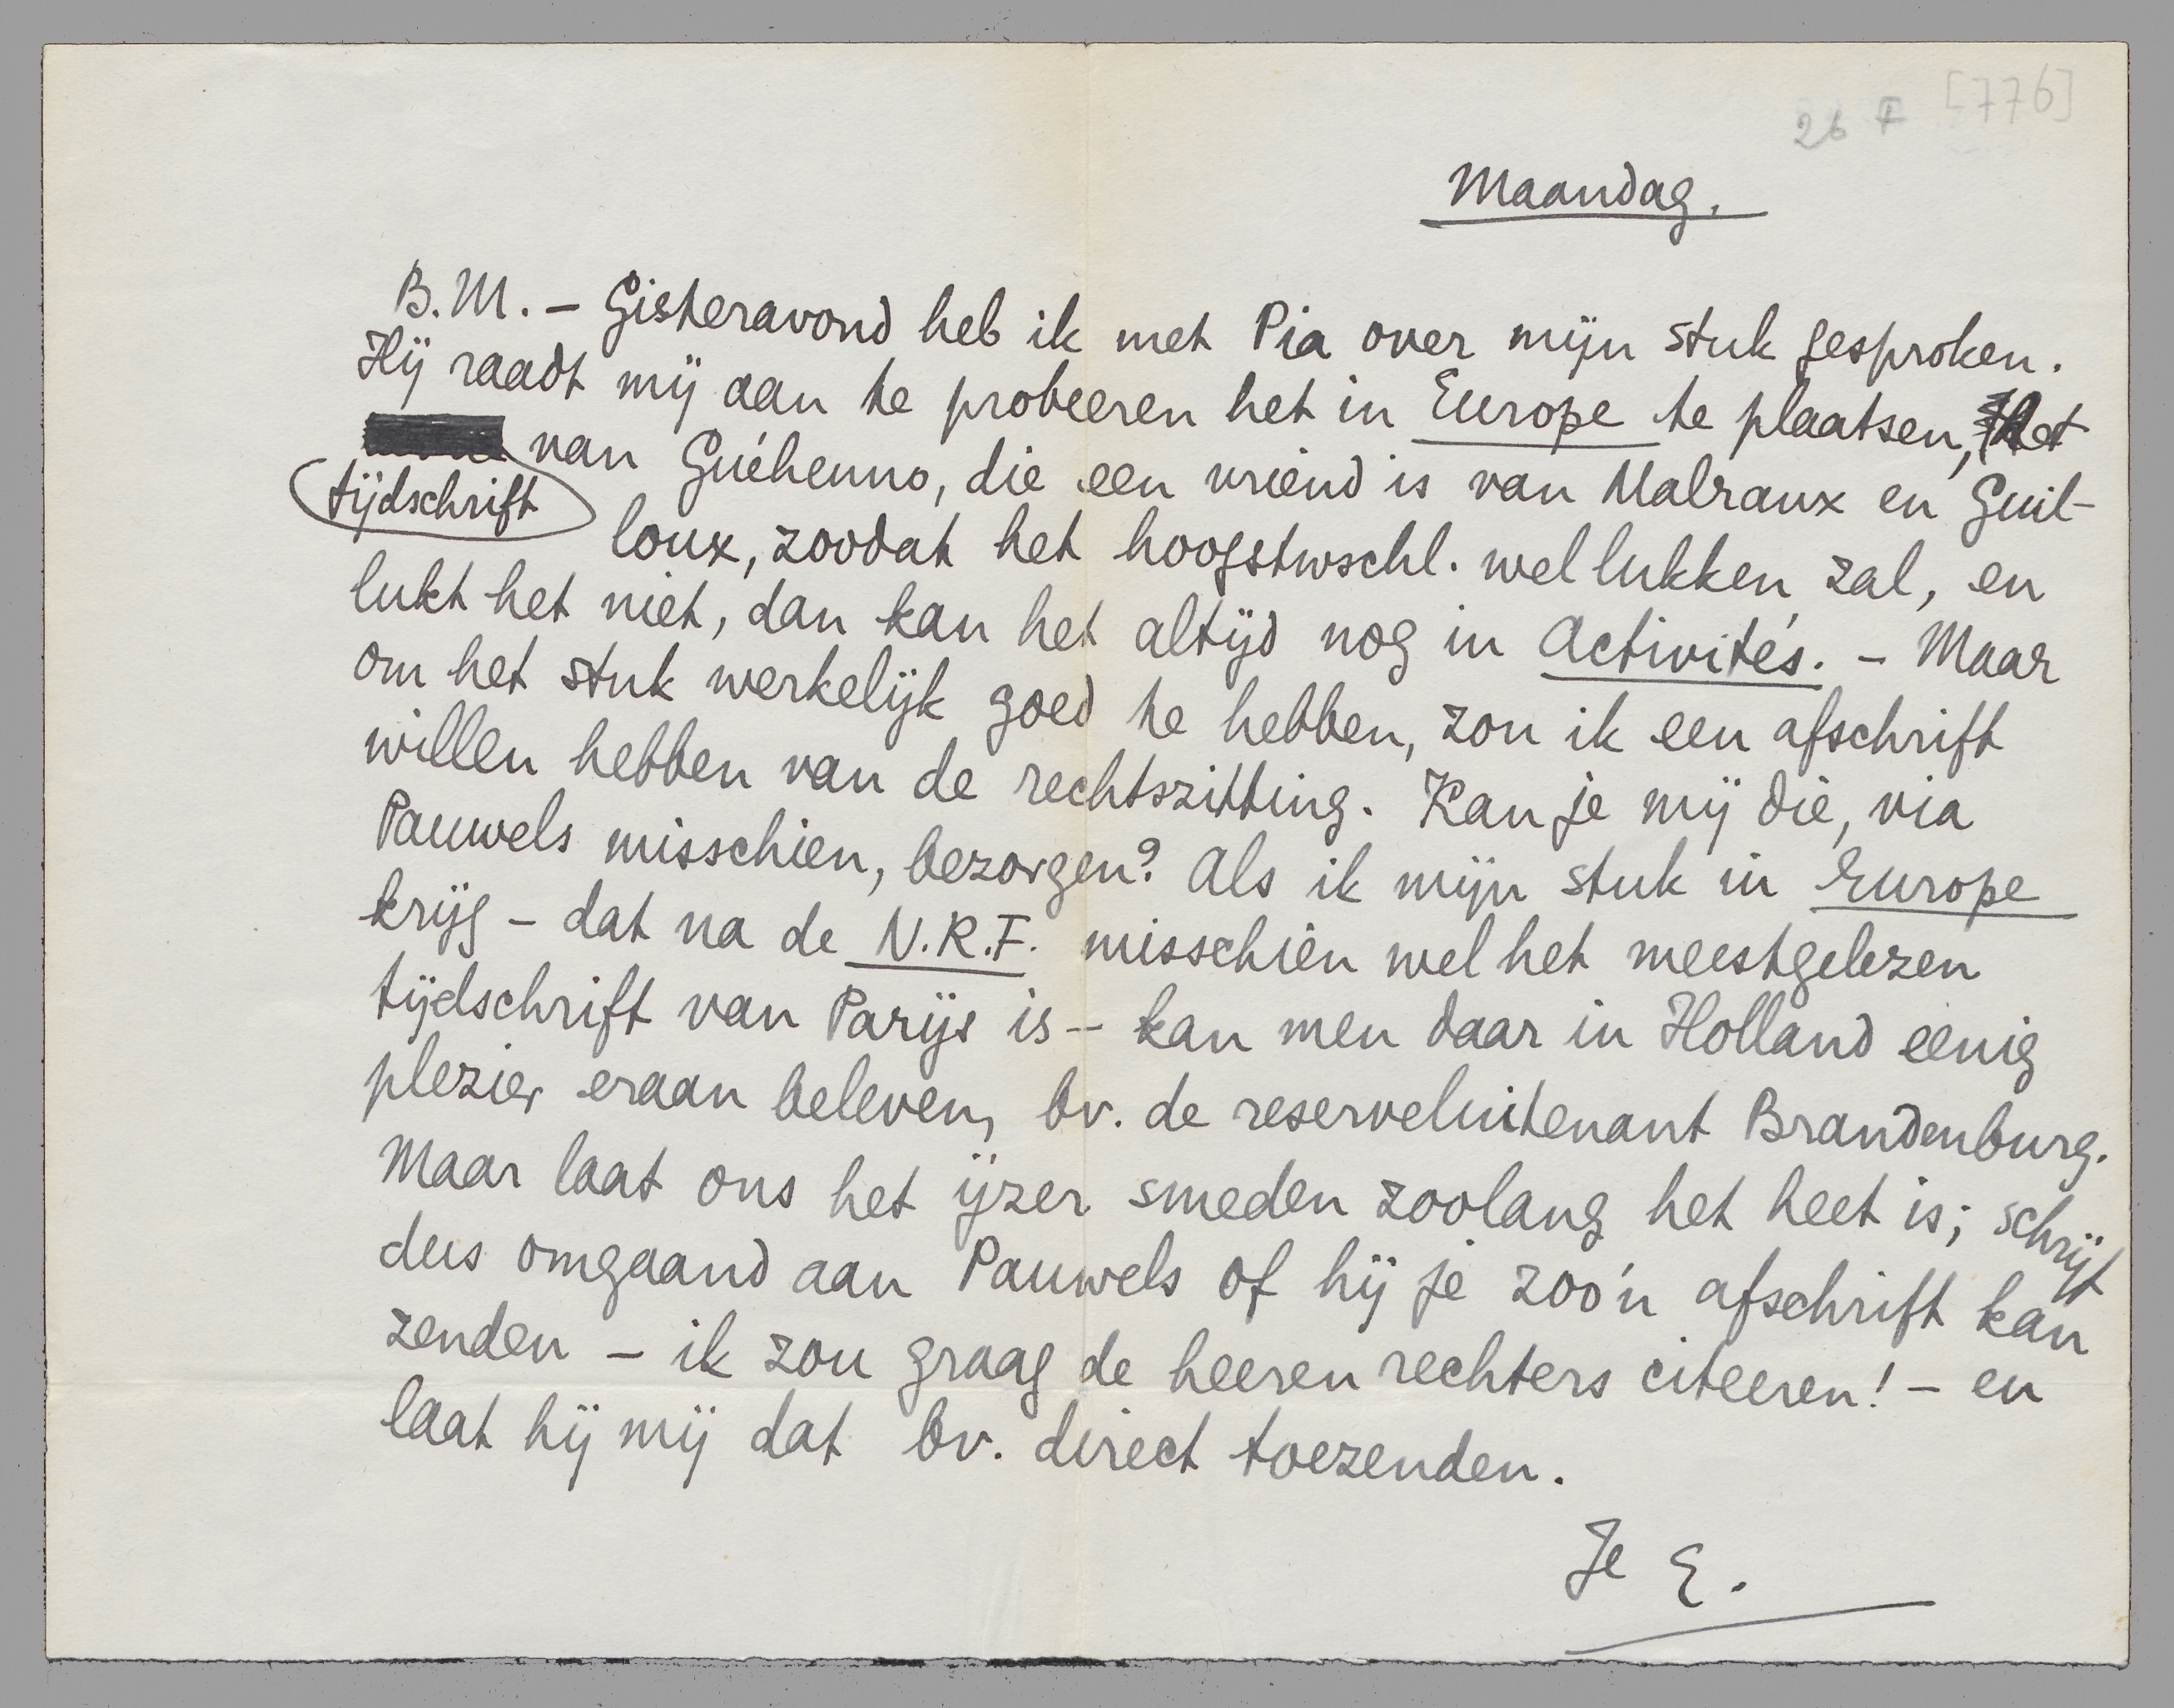 26 F [776]
Maandag.
B.M. – Gisteravond heb ik met Pia over mijn stuk gesproken.
Hij raadt mij aan te probeeren het in Europe te plaatsen, het
tijdschrift van Guéhenno, die een vriend is van Malraux en Guil-
loux, zoodat het hoogstwschl. wel lukken zal, en
lukt het niet, dan kan het altijd nog in Activités. – Maar
om het stuk werkelijk goed te hebben, zou ik een afschrift
willen hebben van de rechtszitting. Kan je mij die, via
Pauwels misschien, bezorgen? Als ik mijn stuk in Europe
krijg – dat na de N.R.F. misschien wel het meestgelezen
tijdschrift van Parijs is – kan men daar in Holland eenig
plezier eraan beleven, bv. de reserveluitenant Brandenburg.
Maar laat ons het ijzer smeden zoolang het heet is; schrijf
dus omgaand aan Pauwels of hij je zoo'n afschrift kan
zenden – ik zou graag de heeren rechters citeeren! – en
laat hij mij dat bv. direct toezenden.
Je E.